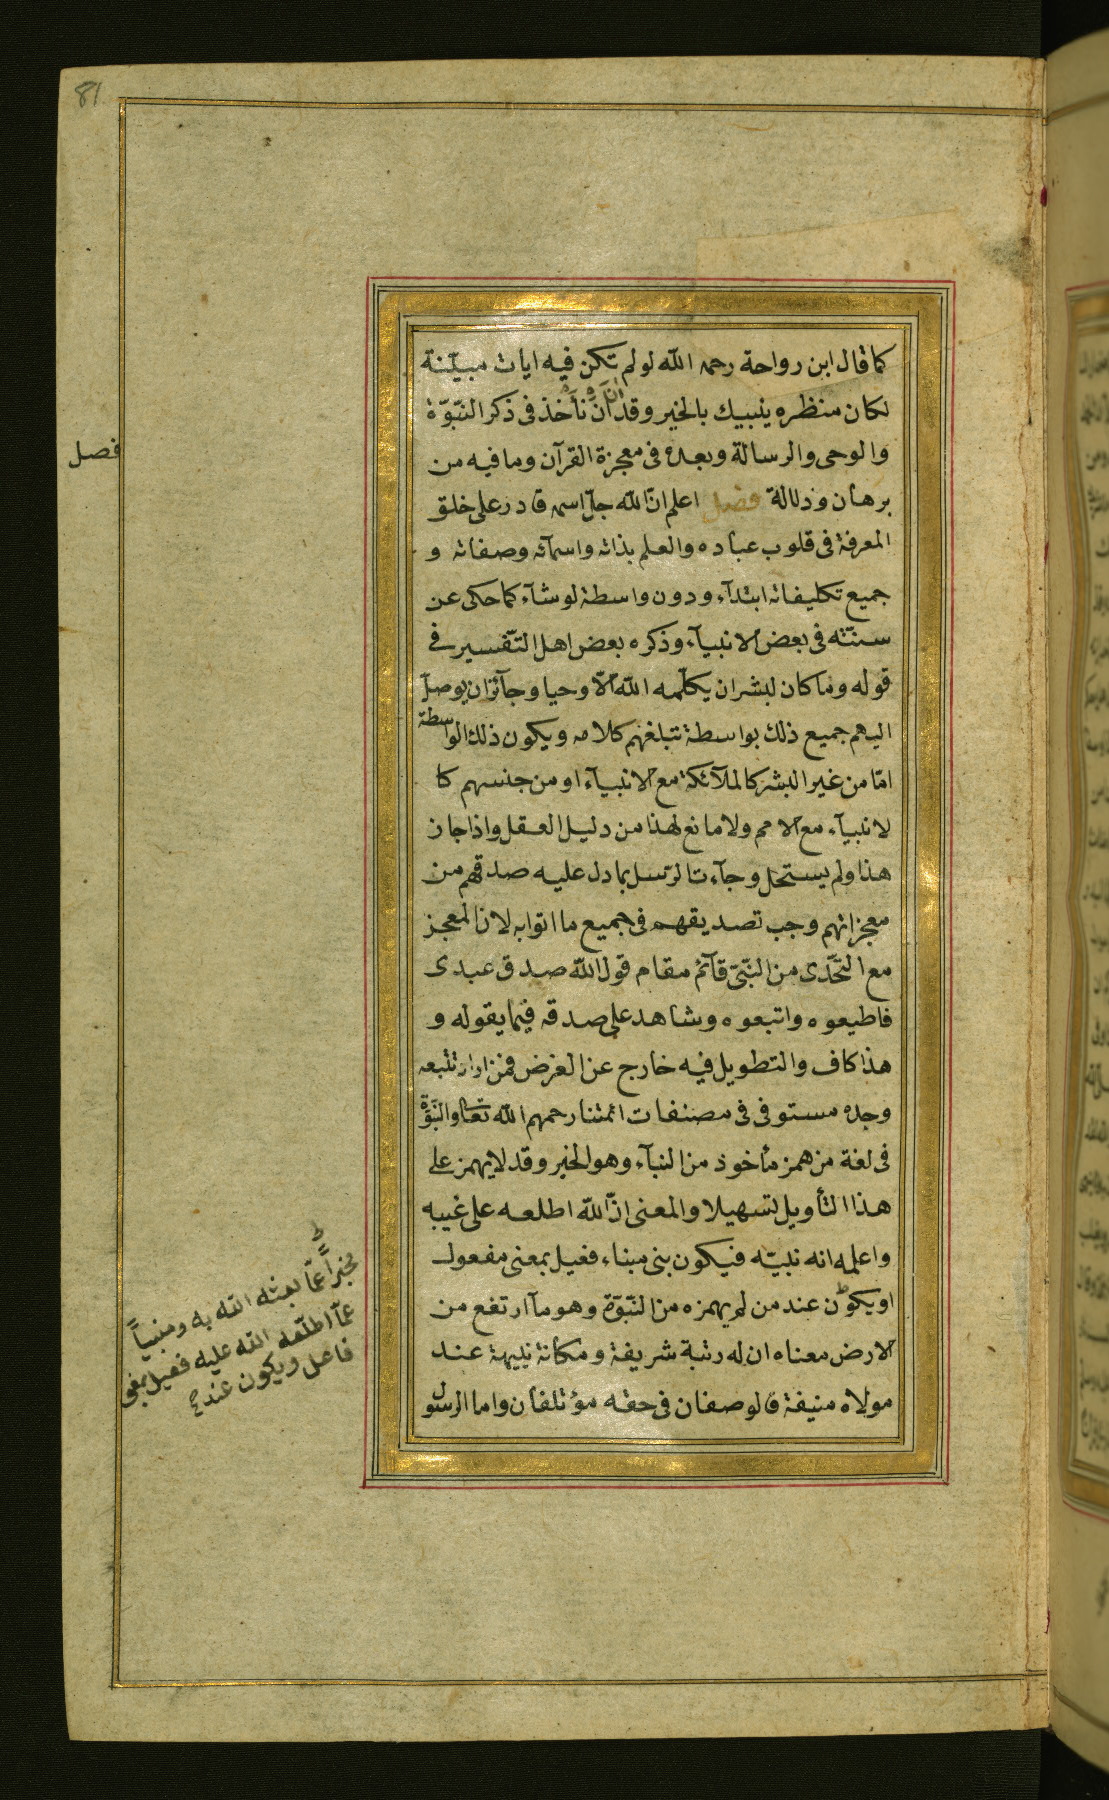 81
كما قال ابن رواحة رحمه الله لو لم تكن فيه ايات مبيّنة
لكان منظره ينبيك بالخير وقد اٰن ان نأخذ فى ذكر النّبوّة
والوحى والرسالة وبعده فى معجزة القرآن وما فيه من
برهان ودلالة فصل اعلم انّ الله جلّ اسمه قادر على خلق
المعرفة فى قلوب عباده والعلم بذاته واسمآئه وصفاته و
جميع تكليفاته ابتدآء ودون واسطة لو شآء كما حكى عن
سنّته فى بعض الانبيآء وذكره بعض اهل التّفسير فى
قوله وما كان لبشر ان يكلّمه الله الّا وحيا وجآئز ان يوصل
اليهم جميع ذلك بواسطة تبلغهم كلامه ويكون ذلك الواسطة
امّا من غير البشر كالملآئكة مع الانبيآء او من جنسهم كا
لانبيآء مع الامم ولا مانع لهذا من دليل العقل واذا جاز
هذا ولم يستحل وجآءت الرّسل بما دل عليه صدقهم من
معجزاتهم وجب تصديقهم فى جميع ما اتوا به لان المعجز
مع التّحدّى من النّبىّ قآئم مقام قول الله صدق عبدى
فاطيعوه واتبعوه وشاهد على صدقه فيما يقوله و
هذا كاف والتطويل فيه خارج عن الغرض فمن اراد تتبعه
وجده مستوفى فى مصنفات ائمتنا رحمهم الله تعالى والنّبوّة
فى لغة من همز مأخوذ من النبآء وهو الخبر وقد لا يهمز على
هذا التأويل تسهيلا والمعنى انّ الله اطلعه على غيبه
واعلمه انه نبيّه فيكون بنى مبناء فعيل بمعنى مفعول
او يكون عند من لم يهمزه من النّبوّة وهو مآ ارتفع من
الارض معناه ان له رتبة شريفة ومكانة نبيهة عند
مولاه منيفة فالوصفان فى حقه مؤتلفان واما الرسو
فصل
مخبراً عمّا بعثه الله به ومنبياً
عمّآ اطلعه الله عليه فعيل بمعنى
فاعل ويكون عند